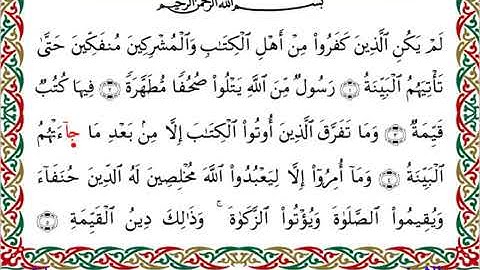 بِسْمِ اللهِ الرَّحْمٰنِ الرَّحِيْمِ
لَمْ يَكُنِ ٱلَّذِينَ كَفَرُوا۟ مِنْ أَهْلِ ٱلْكِتَٰبِ وَٱلْمُشْرِكِينَ مُنفَكِّينَ حَتَّىٰ
تَأْتِيَهُمُ ٱلْبَيِّنَةُ ۝١ رَسُولٌ مِّنَ ٱللَّهِ يَتْلُوا۟ صُحُفًا مُّطَهَّرَةً ۝٢ فِيهَا كُتُبٌ
قَيِّمَةٌ ۝٣ وَمَا تَفَرَّقَ ٱلَّذِينَ أُوتُوا۟ ٱلْكِتَٰبَ إِلَّا مِنۢ بَعْدِ مَا جَآءَتْهُمُ
ٱلْبَيِّنَةُ ۝٤ وَمَآ أُمِرُوٓا۟ إِلَّا لِيَعْبُدُوا۟ ٱللَّهَ مُخْلِصِينَ لَهُ ٱلدِّينَ حُنَفَآءَ
وَيُقِيمُوا۟ ٱلصَّلَوٰةَ وَيُؤْتُوا۟ ٱلزَّكَوٰةَ ۚ وَذَٰلِكَ دِينُ ٱلْقَيِّمَةِ ۝٥